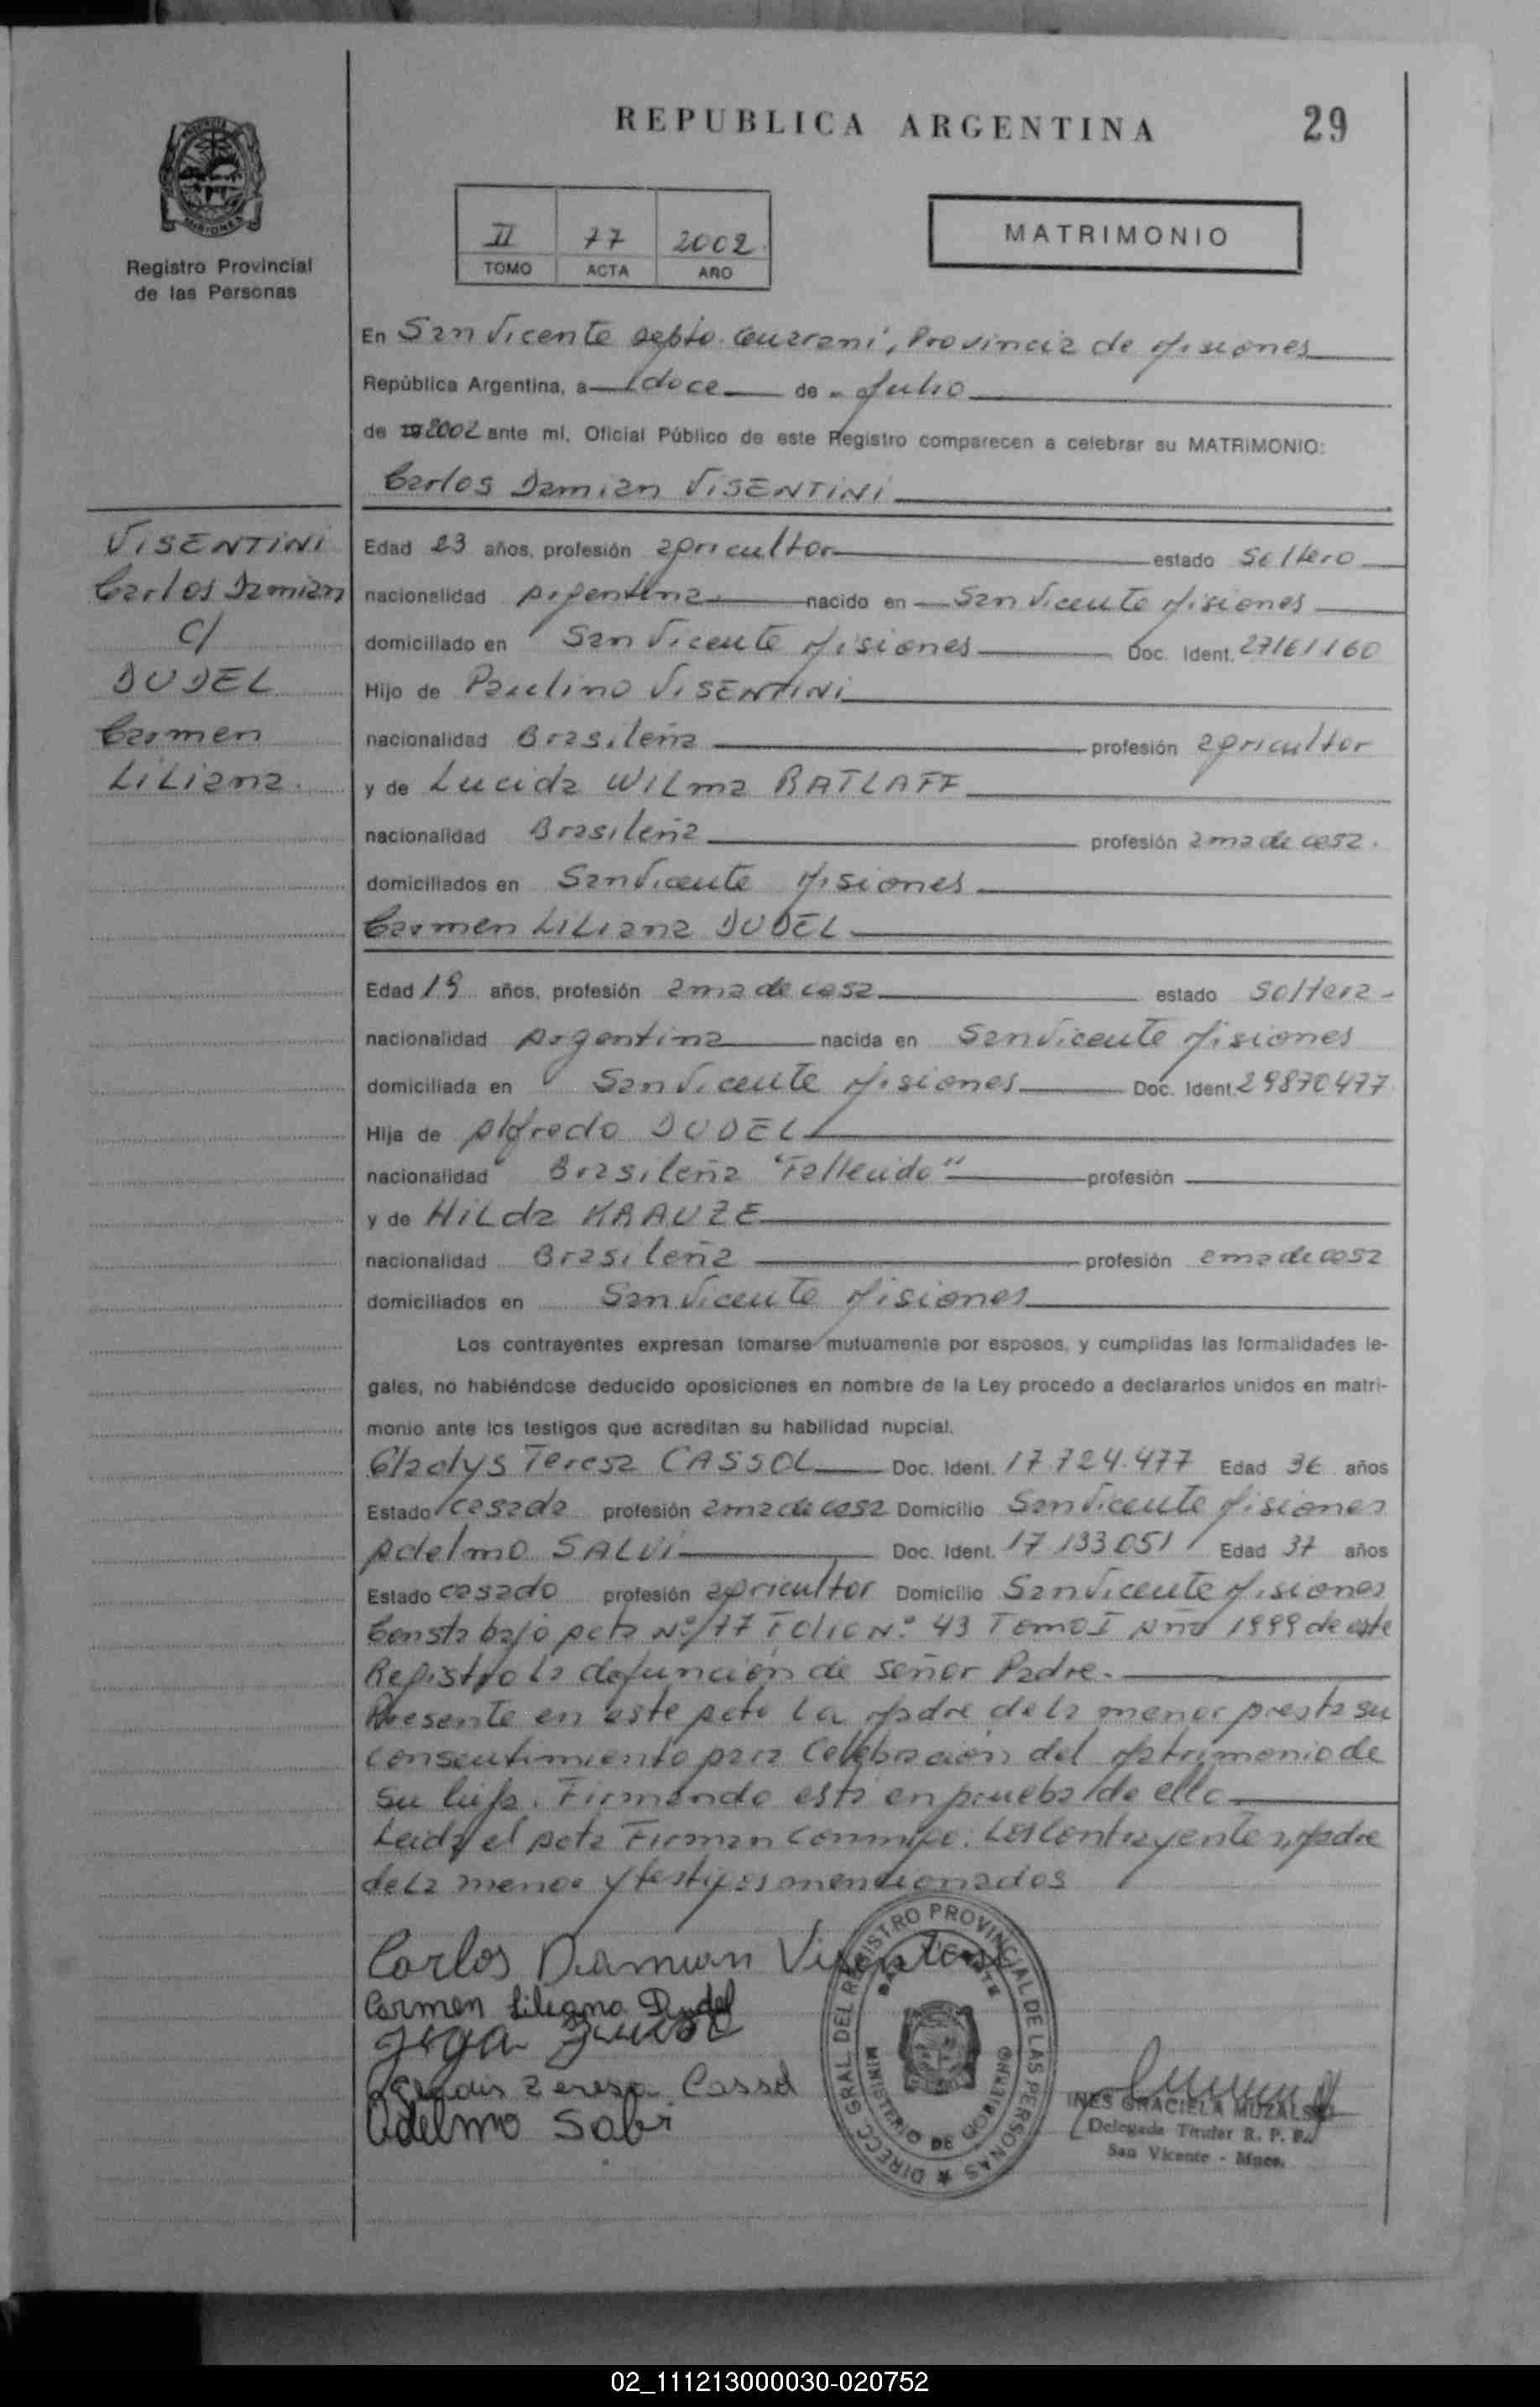 REPUBLICA ARGENTINA
29
MISIONES
Registro Provincial
de las Personas
II 77 2002
TOMO ACTA AÑO
MATRIMONIO
En San Vicente Depto. Guarani, Provincia de Misiones
República Argentina, a doce de Julio
de 19 2002 ante mí, Oficial Público de este Registro comparecen a celebrar su MATRIMONIO:
Carlos Damian VISENTINI
VISENTINI
Carlos Damian
C/
DUDEL
Carmen
Liliana.
Edad 23 años, profesión agricultor estado Soltero
nacionalidad Argentina nacido en San Vicente Misiones
domiciliado en San Vicente Misiones Doc. Ident. 27161160
Hijo de Paulino VISENTINI
nacionalidad Brasileña profesión agricultor
y de Lucida Wilma RATLAFF
nacionalidad Brasileña profesión ama de casa.
domiciliados en San Vicente Misiones
Carmen Liliana DUDEL
Edad 19 años, profesión ama de casa estado Soltera
nacionalidad Argentina nacida en San Vicente Misiones
domiciliada en San Vicente Misiones Doc. Ident. 29870477
Hija de Alfredo DUDEL
nacionalidad Brasileña "Fallecido" profesión
y de Hilda KRAUZE
nacionalidad Brasileña profesión ama de casa
domiciliados en San Vicente Misiones
Los contrayentes expresan tomarse mutuamente por esposos, y cumplidas las formalidades le-
gales, no habiéndose deducido oposiciones en nombre de la Ley procedo a declararlos unidos en matri-
monio ante los testigos que acreditan su habilidad nupcial.
Gladys Teresa CASSOL Doc. Ident. 17.724.477 Edad 36 años
Estado casada profesión ama de casa Domicilio San Vicente Misiones
Adelmo SALVI Doc. Ident. 17 133 051 Edad 37 años
Estado casado profesión agricultor Domicilio San Vicente Misiones
Consta bajo Acta Nº 77 Folio Nº 43 Tomo I Año 1999 de este
Registro la defunción de señor Padre.
Presente en este Acto La Madre de la menor presta su
consentimiento para Celebración del Matrimonio de
su hija. Firmando esta en prueba de ello
Leida el Acta Firman conmigo: Los Contrayentes, Madre
de la menor y testigos mencionados
Carlos Damian Visentini
Carmen Liliana Dudel
Gladis Teresa Cassol
Adelmo Salvi
DIRECC. GRAL. DEL REGISTRO PROVINCIAL DE LAS PERSONAS
SAN VICENTE
MINISTERIO DE GOBIERNO
INES GRACIELA
Delegada Titular R. P. P.
San Vicente - Mnes.
02_111213000030-020752